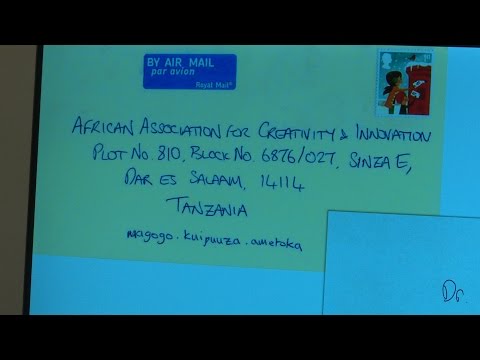 BY AIR MAIL
par avion
Royal Mail
1st
AFRICAN ASSOCIATION FOR CREATIVITY & INNOVATION
PLOT NO. 810, BLOCK NO. 6876/027, SINZA E,
DAR ES SALAAM, 14114
TANZANIA
magogo.kuipuuza.ametoka
Dr.